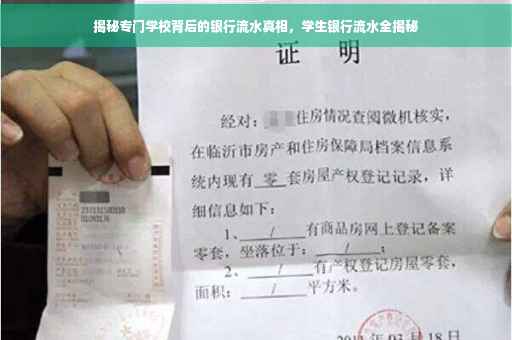 揭秘专门学校背后的银行流水真相，学生银行流水全揭秘
证 明
经对：住房情况查阅微机核实，
在临沂市房产和住房保障局档案信息系
统内现有 零 套房屋产权登记记录，详
细信息如下：
1、 / 有商品房网上登记备案
零套，坐落位于： / ；
2、 / 有产权登记房屋零套，
面积： / 平方米。
03月18日